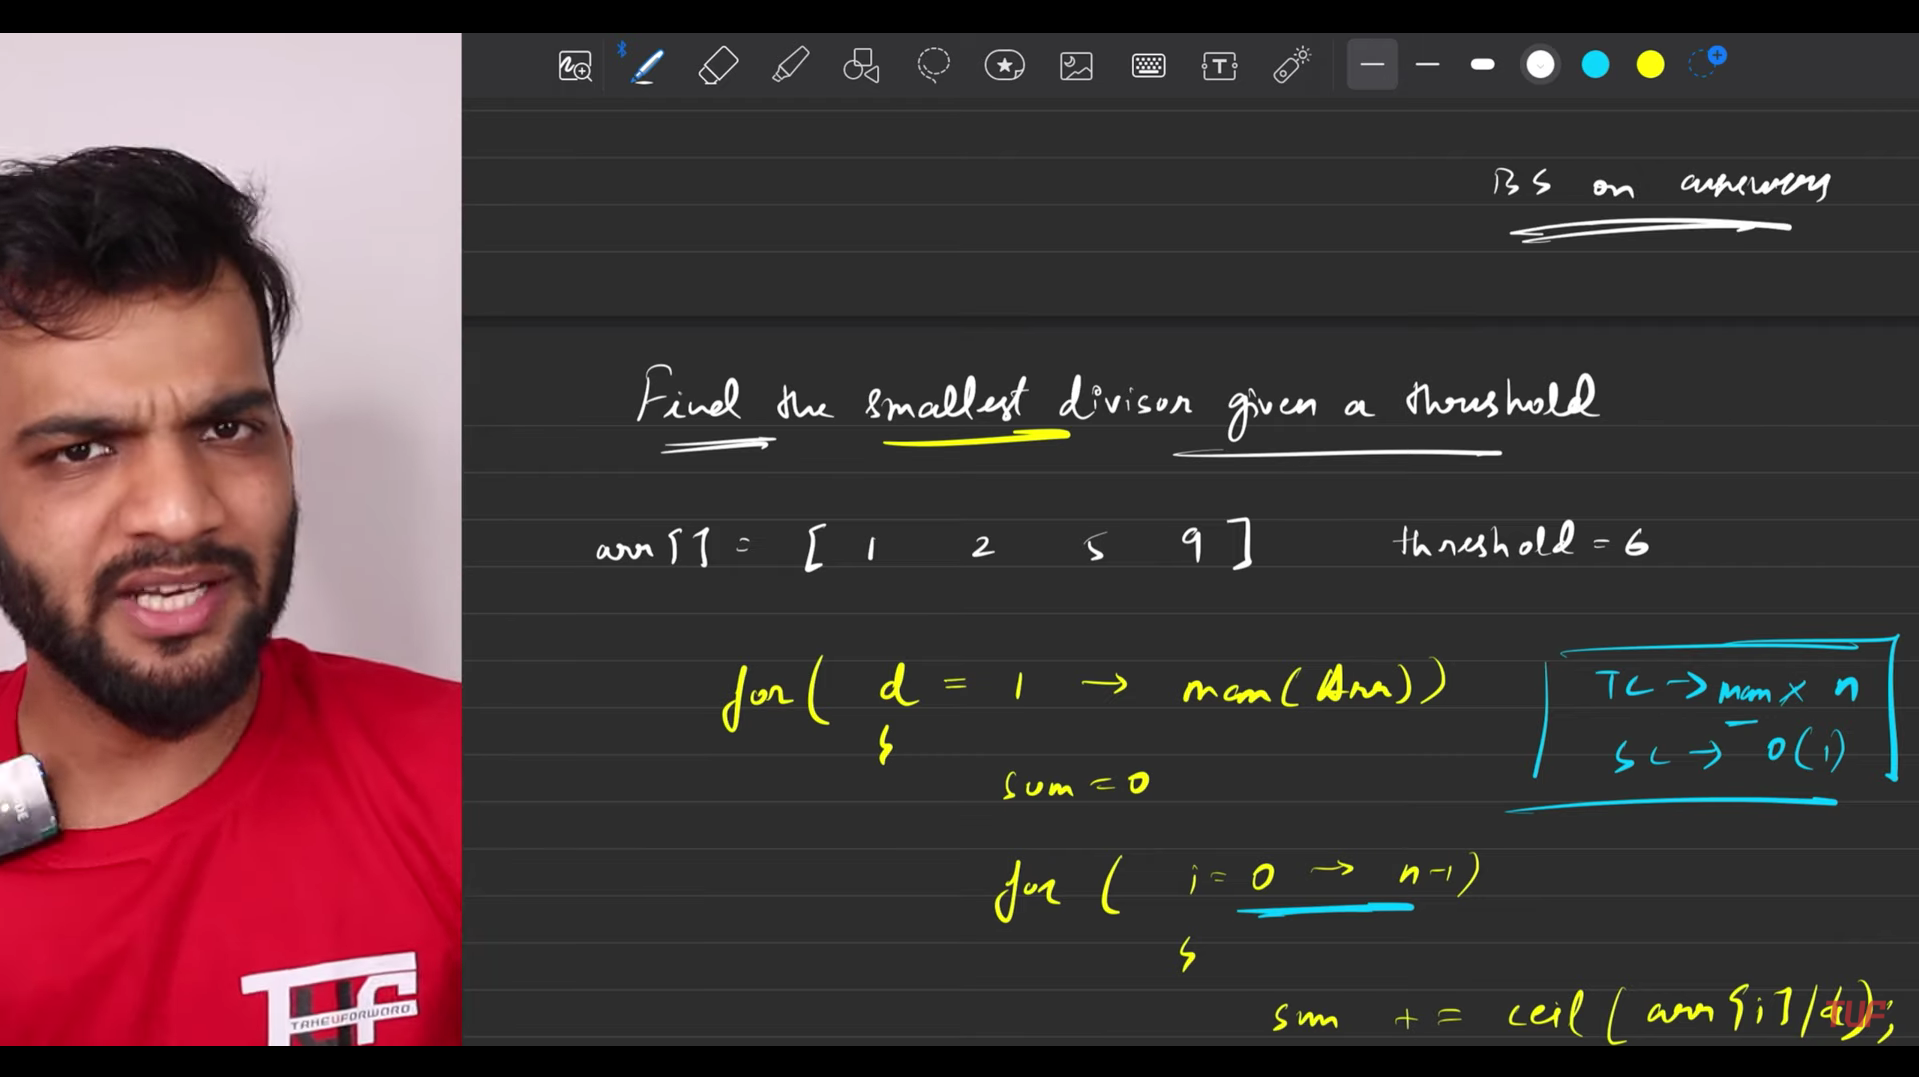 BS on answers
Find the smallest divisor given a threshold
arr[] = [ 1 2 5 9 ] threshold = 6
for( d = 1 → max(Arr))
{
TC → max x n
SC → O(1)
sum = 0
for ( i = 0 → n-1)
{
sum += ceil(arr[i]/d);
TUF
TUF
TAKEUFORWARD
DE